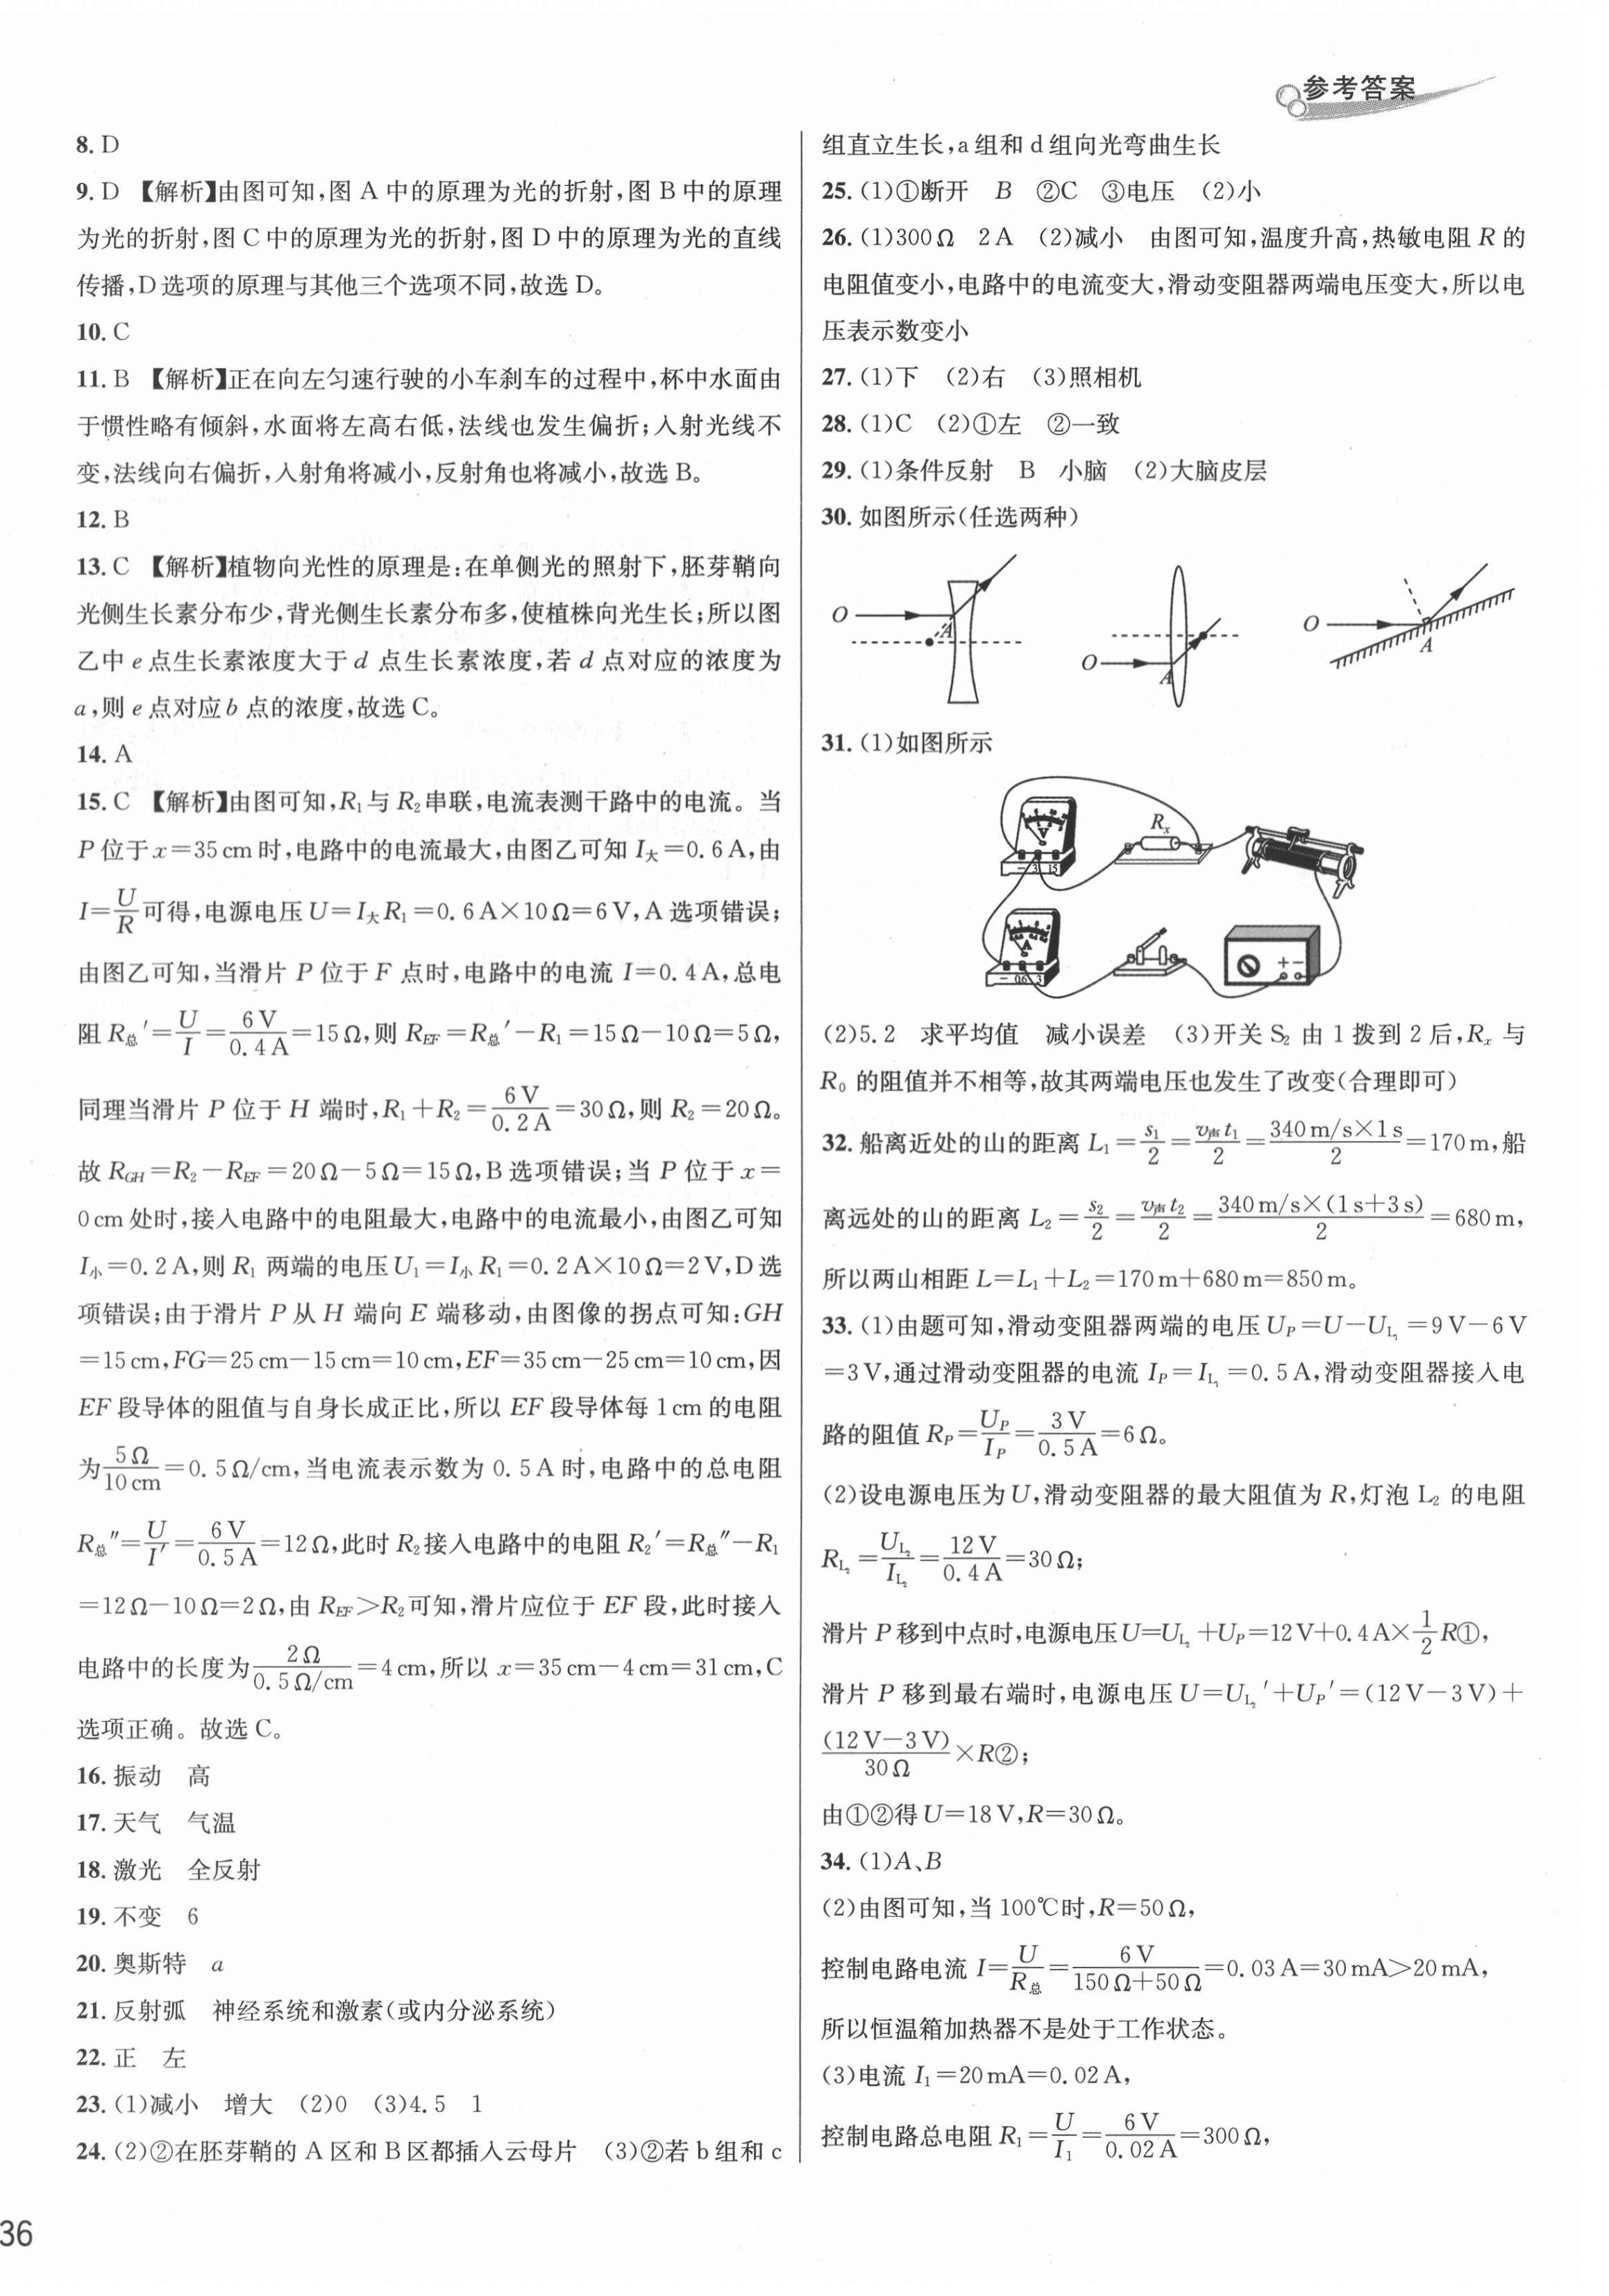 参考答案
8. D
9. D 【解析】由图可知,图 A 中的原理为光的折射,图 B 中的原理
为光的折射,图 C 中的原理为光的折射,图 D 中的原理为光的直线
传播,D 选项的原理与其他三个选项不同,故选 D。
10. C
11. B 【解析】正在向左匀速行驶的小车刹车的过程中,杯中水面由
于惯性略有倾斜,水面将左高右低,法线也发生偏折;入射光线不
变,法线向右偏折,入射角将减小,反射角也将减小,故选 B。
12. B
13. C 【解析】植物向光性的原理是:在单侧光的照射下,胚芽鞘向
光侧生长素分布少,背光侧生长素分布多,使植株向光生长;所以图
乙中 e 点生长素浓度大于 d 点生长素浓度,若 d 点对应的浓度为
a,则 e 点对应 b 点的浓度,故选 C。
14. A
15. C 【解析】由图可知,R₁与 R₂串联,电流表测干路中的电流。当
P 位于 x=35 cm 时,电路中的电流最大,由图乙可知 I大=0.6 A,由
I=U/R可得,电源电压 U=I大R₁=0.6 A×10 Ω=6 V,A 选项错误;
由图乙可知,当滑片 P 位于 F 点时,电路中的电流 I=0.4 A,总电
阻 R总′=U/I=6 V/0.4 A=15 Ω,则 R_EF=R总′-R₁=15 Ω-10 Ω=5 Ω,
同理当滑片 P 位于 H 端时,R₁+R₂=6 V/0.2 A=30 Ω,则 R₂=20 Ω。
故 R_GH=R₂-R_EF=20 Ω-5 Ω=15 Ω,B 选项错误;当 P 位于 x=
0 cm 处时,接入电路中的电阻最大,电路中的电流最小,由图乙可知
I小=0.2 A,则 R₁ 两端的电压 U₁=I小R₁=0.2 A×10 Ω=2 V,D 选
项错误;由于滑片 P 从 H 端向 E 端移动,由图像的拐点可知:GH
=15 cm,FG=25 cm-15 cm=10 cm,EF=35 cm-25 cm=10 cm,因
EF 段导体的阻值与自身长成正比,所以 EF 段导体每 1 cm 的电阻
为5 Ω/10 cm=0.5 Ω/cm,当电流表示数为 0.5 A 时,电路中的总电阻
R总″=U/I′=6 V/0.5 A=12 Ω,此时 R₂接入电路中的电阻 R₂′=R总″-R₁
=12 Ω-10 Ω=2 Ω,由 R_EF>R₂可知,滑片应位于 EF 段,此时接入
电路中的长度为2 Ω/0.5 Ω/cm=4 cm,所以 x=35 cm-4 cm=31 cm,C
选项正确。故选 C。
16. 振动 高
17. 天气 气温
18. 激光 全反射
19. 不变 6
20. 奥斯特 a
21. 反射弧 神经系统和激素(或内分泌系统)
22. 正 左
23. (1)减小 增大 (2)0 (3)4.5 1
24. (2)②在胚芽鞘的 A 区和 B 区都插入云母片 (3)②若 b 组和 c
36
组直立生长,a 组和 d 组向光弯曲生长
25. (1)①断开 B ②C ③电压 (2)小
26. (1)300 Ω 2 A (2)减小 由图可知,温度升高,热敏电阻 R 的
电阻值变小,电路中的电流变大,滑动变阻器两端电压变大,所以电
压表示数变小
27. (1)下 (2)右 (3)照相机
28. (1)C (2)①左 ②一致
29. (1)条件反射 B 小脑 (2)大脑皮层
30. 如图所示(任选两种)
O A
O A
O A
31. (1)如图所示
V
- 3 15
Rx
A
- 0.6 3
+ -
(2)5.2 求平均值 减小误差 (3)开关 S₂ 由 1 拨到 2 后,Rₓ 与
R₀ 的阻值并不相等,故其两端电压也发生了改变(合理即可)
32. 船离近处的山的距离 L₁=s₁/2=v声t₁/2=340 m/s×1 s/2=170 m,船
离远处的山的距离 L₂=s₂/2=v声t₂/2=340 m/s×(1 s+3 s)/2=680 m,
所以两山相距 L=L₁+L₂=170 m+680 m=850 m。
33. (1)由题可知,滑动变阻器两端的电压 U_P=U-U_L₁=9 V-6 V
=3 V,通过滑动变阻器的电流 I_P=I_L₁=0.5 A,滑动变阻器接入电
路的阻值 R_P=U_P/I_P=3 V/0.5 A=6 Ω。
(2)设电源电压为 U,滑动变阻器的最大阻值为 R,灯泡 L₂ 的电阻
R_L₂=U_L₂/I_L₂=12 V/0.4 A=30 Ω;
滑片 P 移到中点时,电源电压 U=U_L₂+U_P=12 V+0.4 A×1/2R①,
滑片 P 移到最右端时,电源电压 U=U_L₂′+U_P′=(12 V-3 V)+
(12 V-3 V)/30 Ω×R②;
由①②得 U=18 V,R=30 Ω。
34. (1)A、B
(2)由图可知,当 100℃时,R=50 Ω,
控制电路电流 I=U/R总=6 V/150 Ω+50 Ω=0.03 A=30 mA>20 mA,
所以恒温箱加热器不是处于工作状态。
(3)电流 I₁=20 mA=0.02 A,
控制电路总电阻 R₁=U/I₁=6 V/0.02 A=300 Ω,